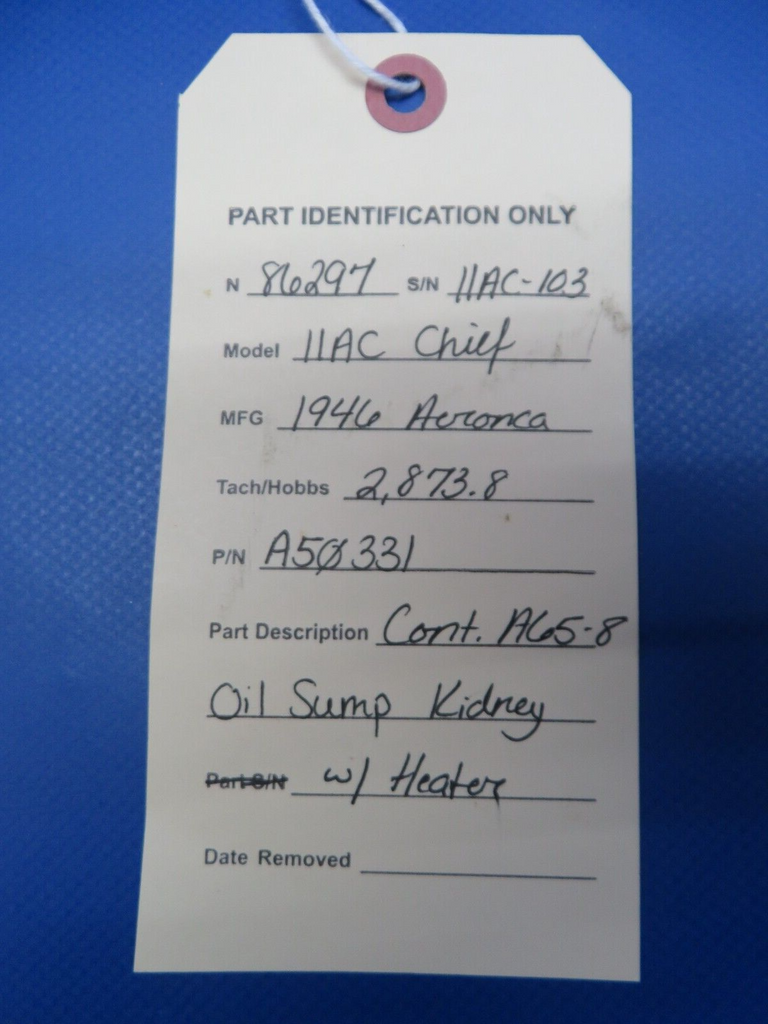 PART IDENTIFICATION ONLY
N 86297 S/N 11AC-103
Model 11AC Chief
MFG 1946 Aeronca
Tach/Hobbs 2,873.8
P/N A50331
Part Description Cont. A65-8
Oil Sump Kidney
Part S/N w/ Heater
Date Removed